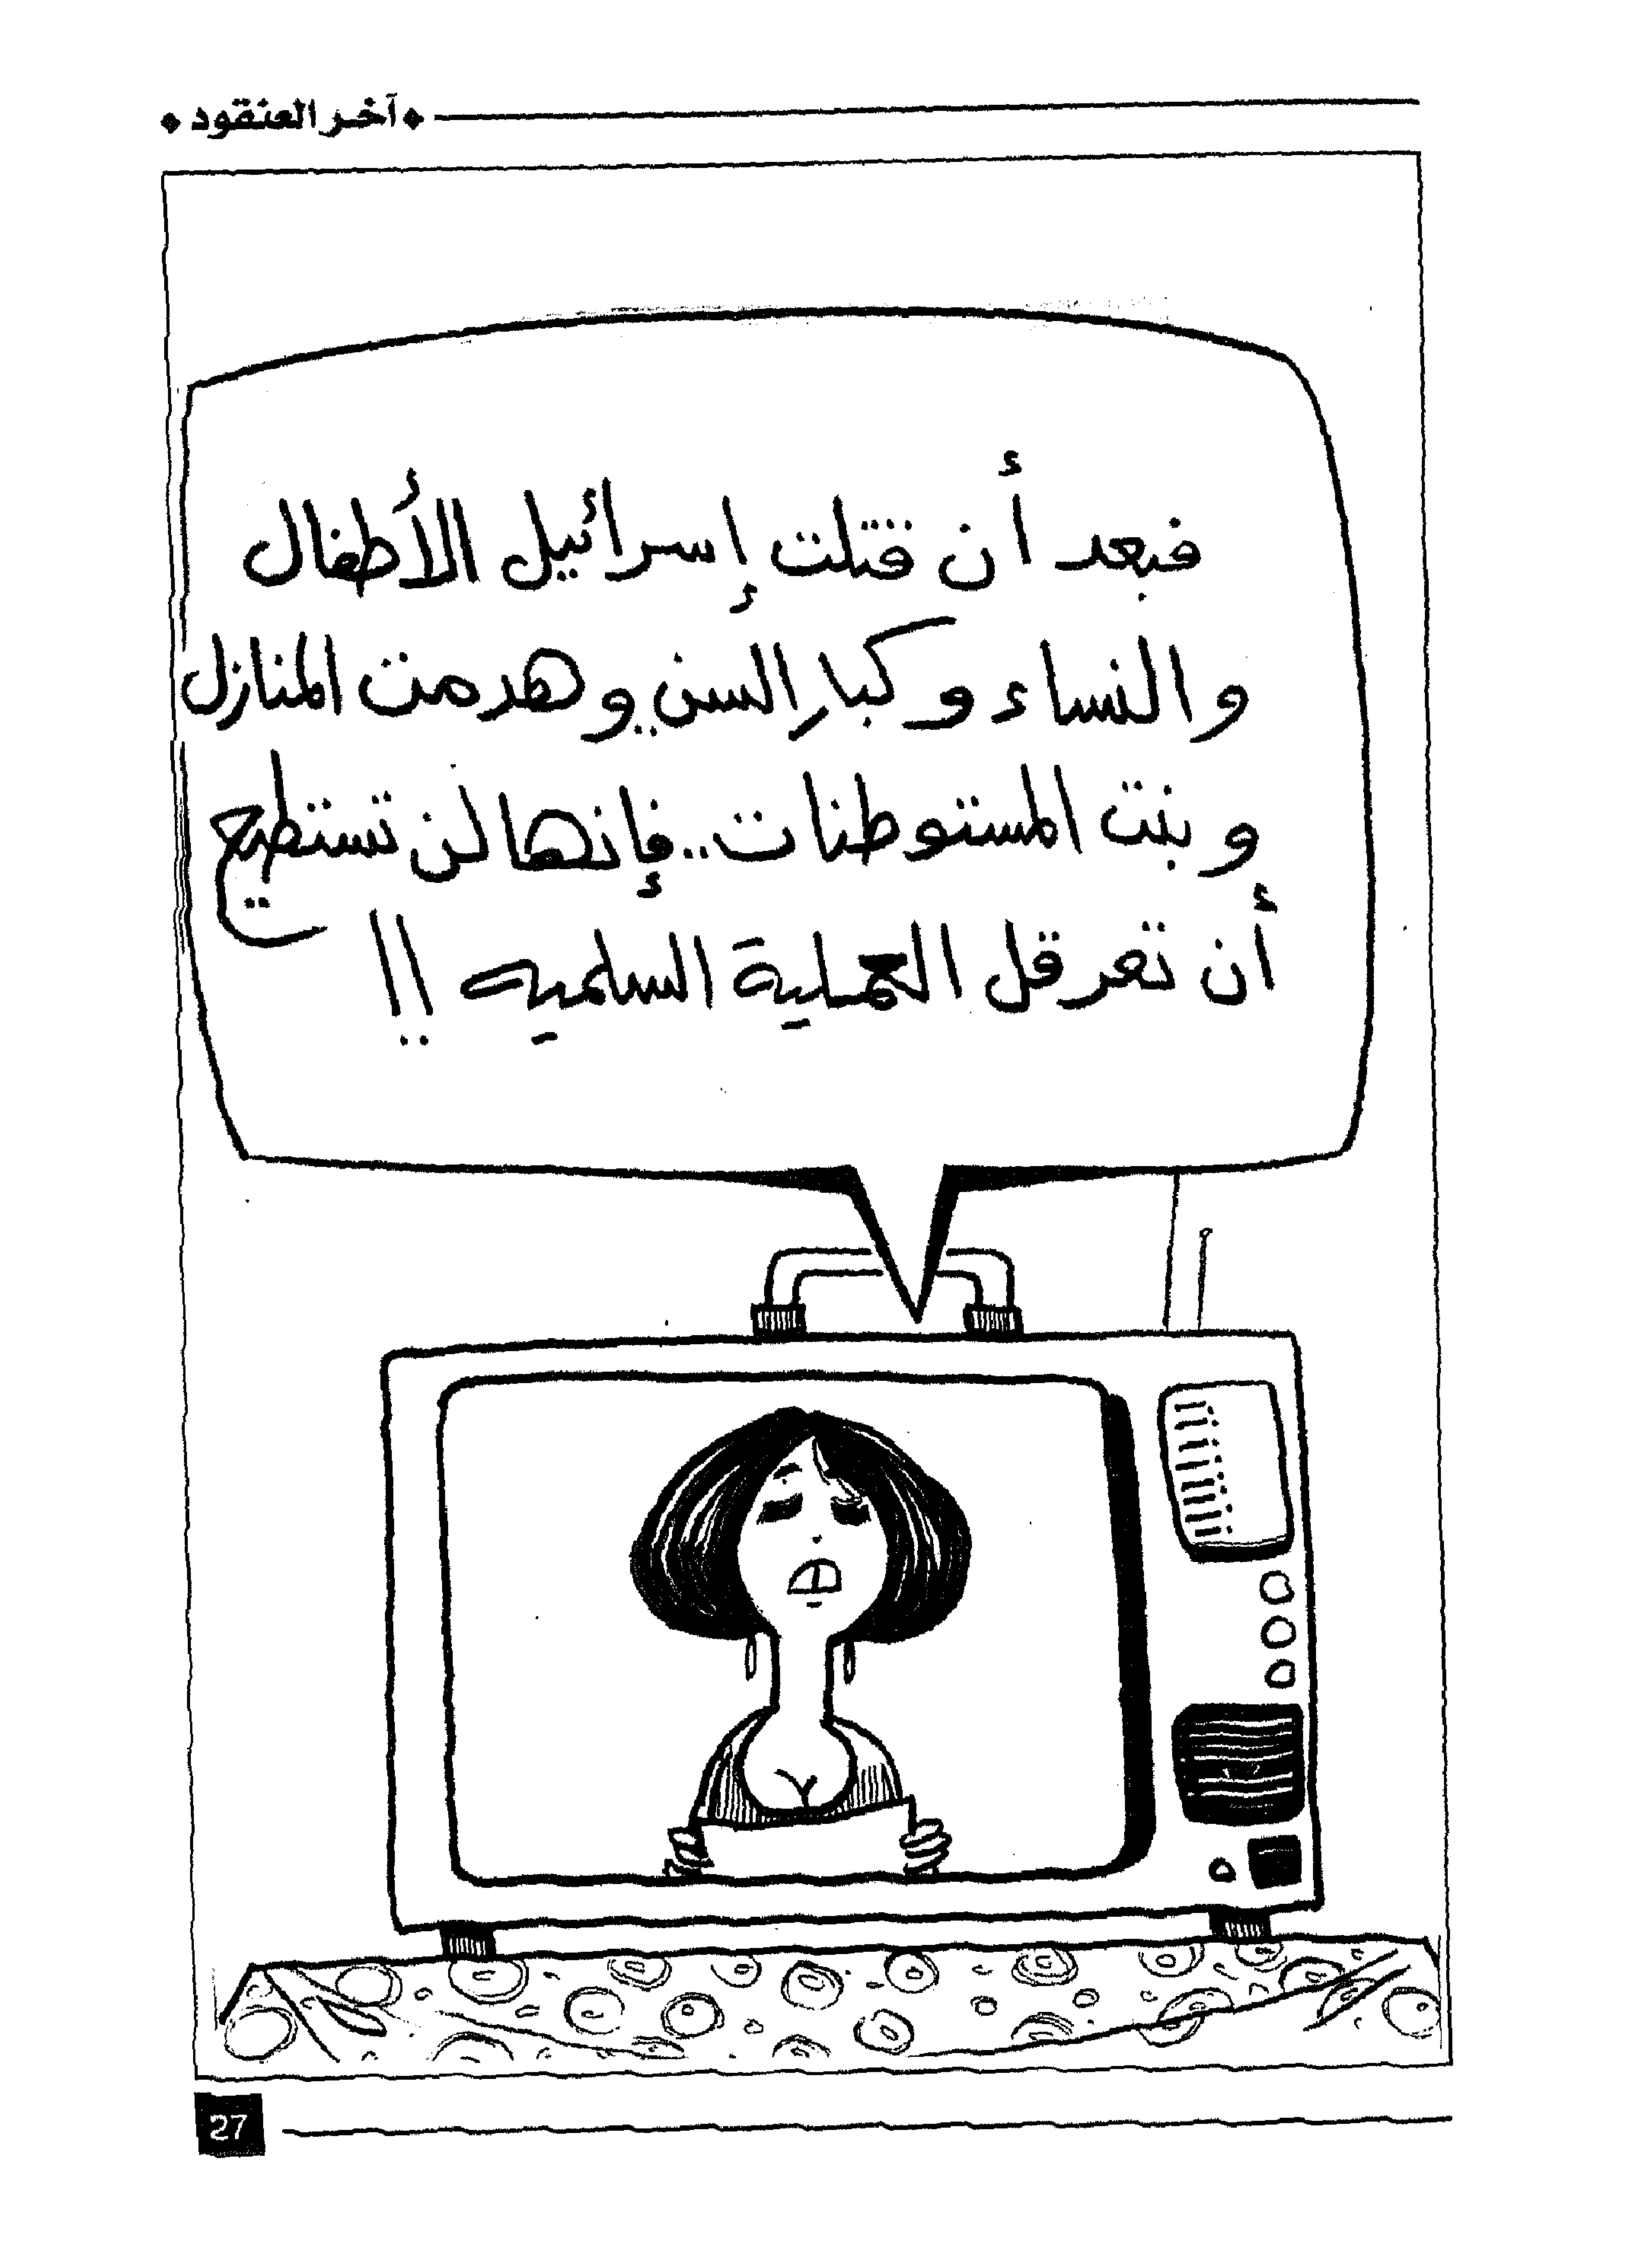 آخر العنقود
فبعد أن قتلت إسرائيل الأطفال
والنساء وكبار السن.. وهدمت المنازل
وبنت المستوطنات.. فإنها لن تستطيع
أن تعرقل العملية السلميه !!
27